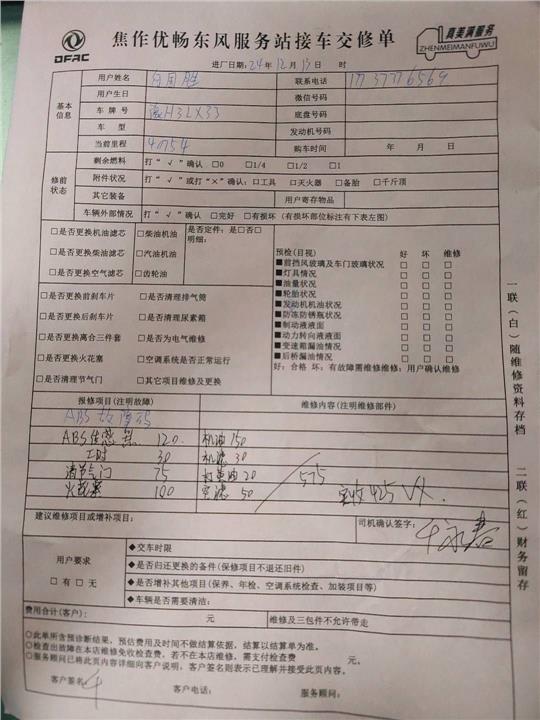 DFAC
焦作优畅东风服务站接车交修单
真美满服务
ZHENMEIMANFUWU
进厂日期:24年12月13日 时
基本信息
用户姓名
联系电话
用户生日 微信号码
车牌号 H3LX33 底盘号码
车型 发动机号码
当前里程 购车时间 年 月 日
修前状态
剩余燃料 打“√”确认 □0 □1/4 □1/2 □1
附件状况 打“√”或打“×”确认:□工具 □灭火器 □备胎 □千斤顶
其它装备 用户寄存物品
车辆外部情况 打“√”确认 □完好 □有损坏 (有损坏部位标注有下表左图)
□是否更换机油滤芯 □柴油机油 是否定件:是□否□
明细:
□是否更换柴油滤芯 □汽油机油
□是否更换空气滤芯 □齿轮油
预检(目视) 好 坏 维修
■前挡风玻璃及车门玻璃状况 □ □ □
■灯具情况 □ □ □
■油量状况 □ □ □
■轮胎状况 □ □ □
■发动机机油状况 □ □ □
■防冻防锈瓶状况 □ □ □
■制动液液面 □ □ □
■动力转向液液面 □ □ □
■变速箱漏油情况 □ □ □
■后桥漏油情况 □ □ □
好:合格 坏:有故障需维修维修:用户确认维修
□是否更换前刹车片 □是否清理排气筒
□是否更换后刹车片 □是否清理尿素箱
□是否更换离合三件套 □是否为电气维修
□是否更换火花塞 □空调系统是否正常运行
□是否清理节气门 □其它项目维修及更换
报修项目(注明故障) 维修内容(注明维修部件)
ABS故障码
ABS传感器 120 机油150
工时 30 机滤 30
清节气门 75 打黄油 20 575
火花塞 100 空滤 50 实收425
建议维修项目或增补项目: 司机确认签字:
用户要求
□有□无
◆交车时限
◆是否归还更换的备件(保修项目不退还旧件)
◆是否增补其他项目(保养、年检、空调系统检查、加装项目等)
◆车辆是否需要清洁:
费用合计(客户): 元 维修及三包件不允许带走
○此单所含预诊断结果,预估费用及时间不做结算依据,结算以结算单为准。
○检查出故障在本店维修免收检查费,若不在本店维修,需支付检查费 元。
○服务顾问已将此页内容详细向客户说明,客户签名则表示已理解并接受此页内容。
客户签名: 客户电话: 服务顾问:
一联(白)随维修资料存档
二联(红)财务留存